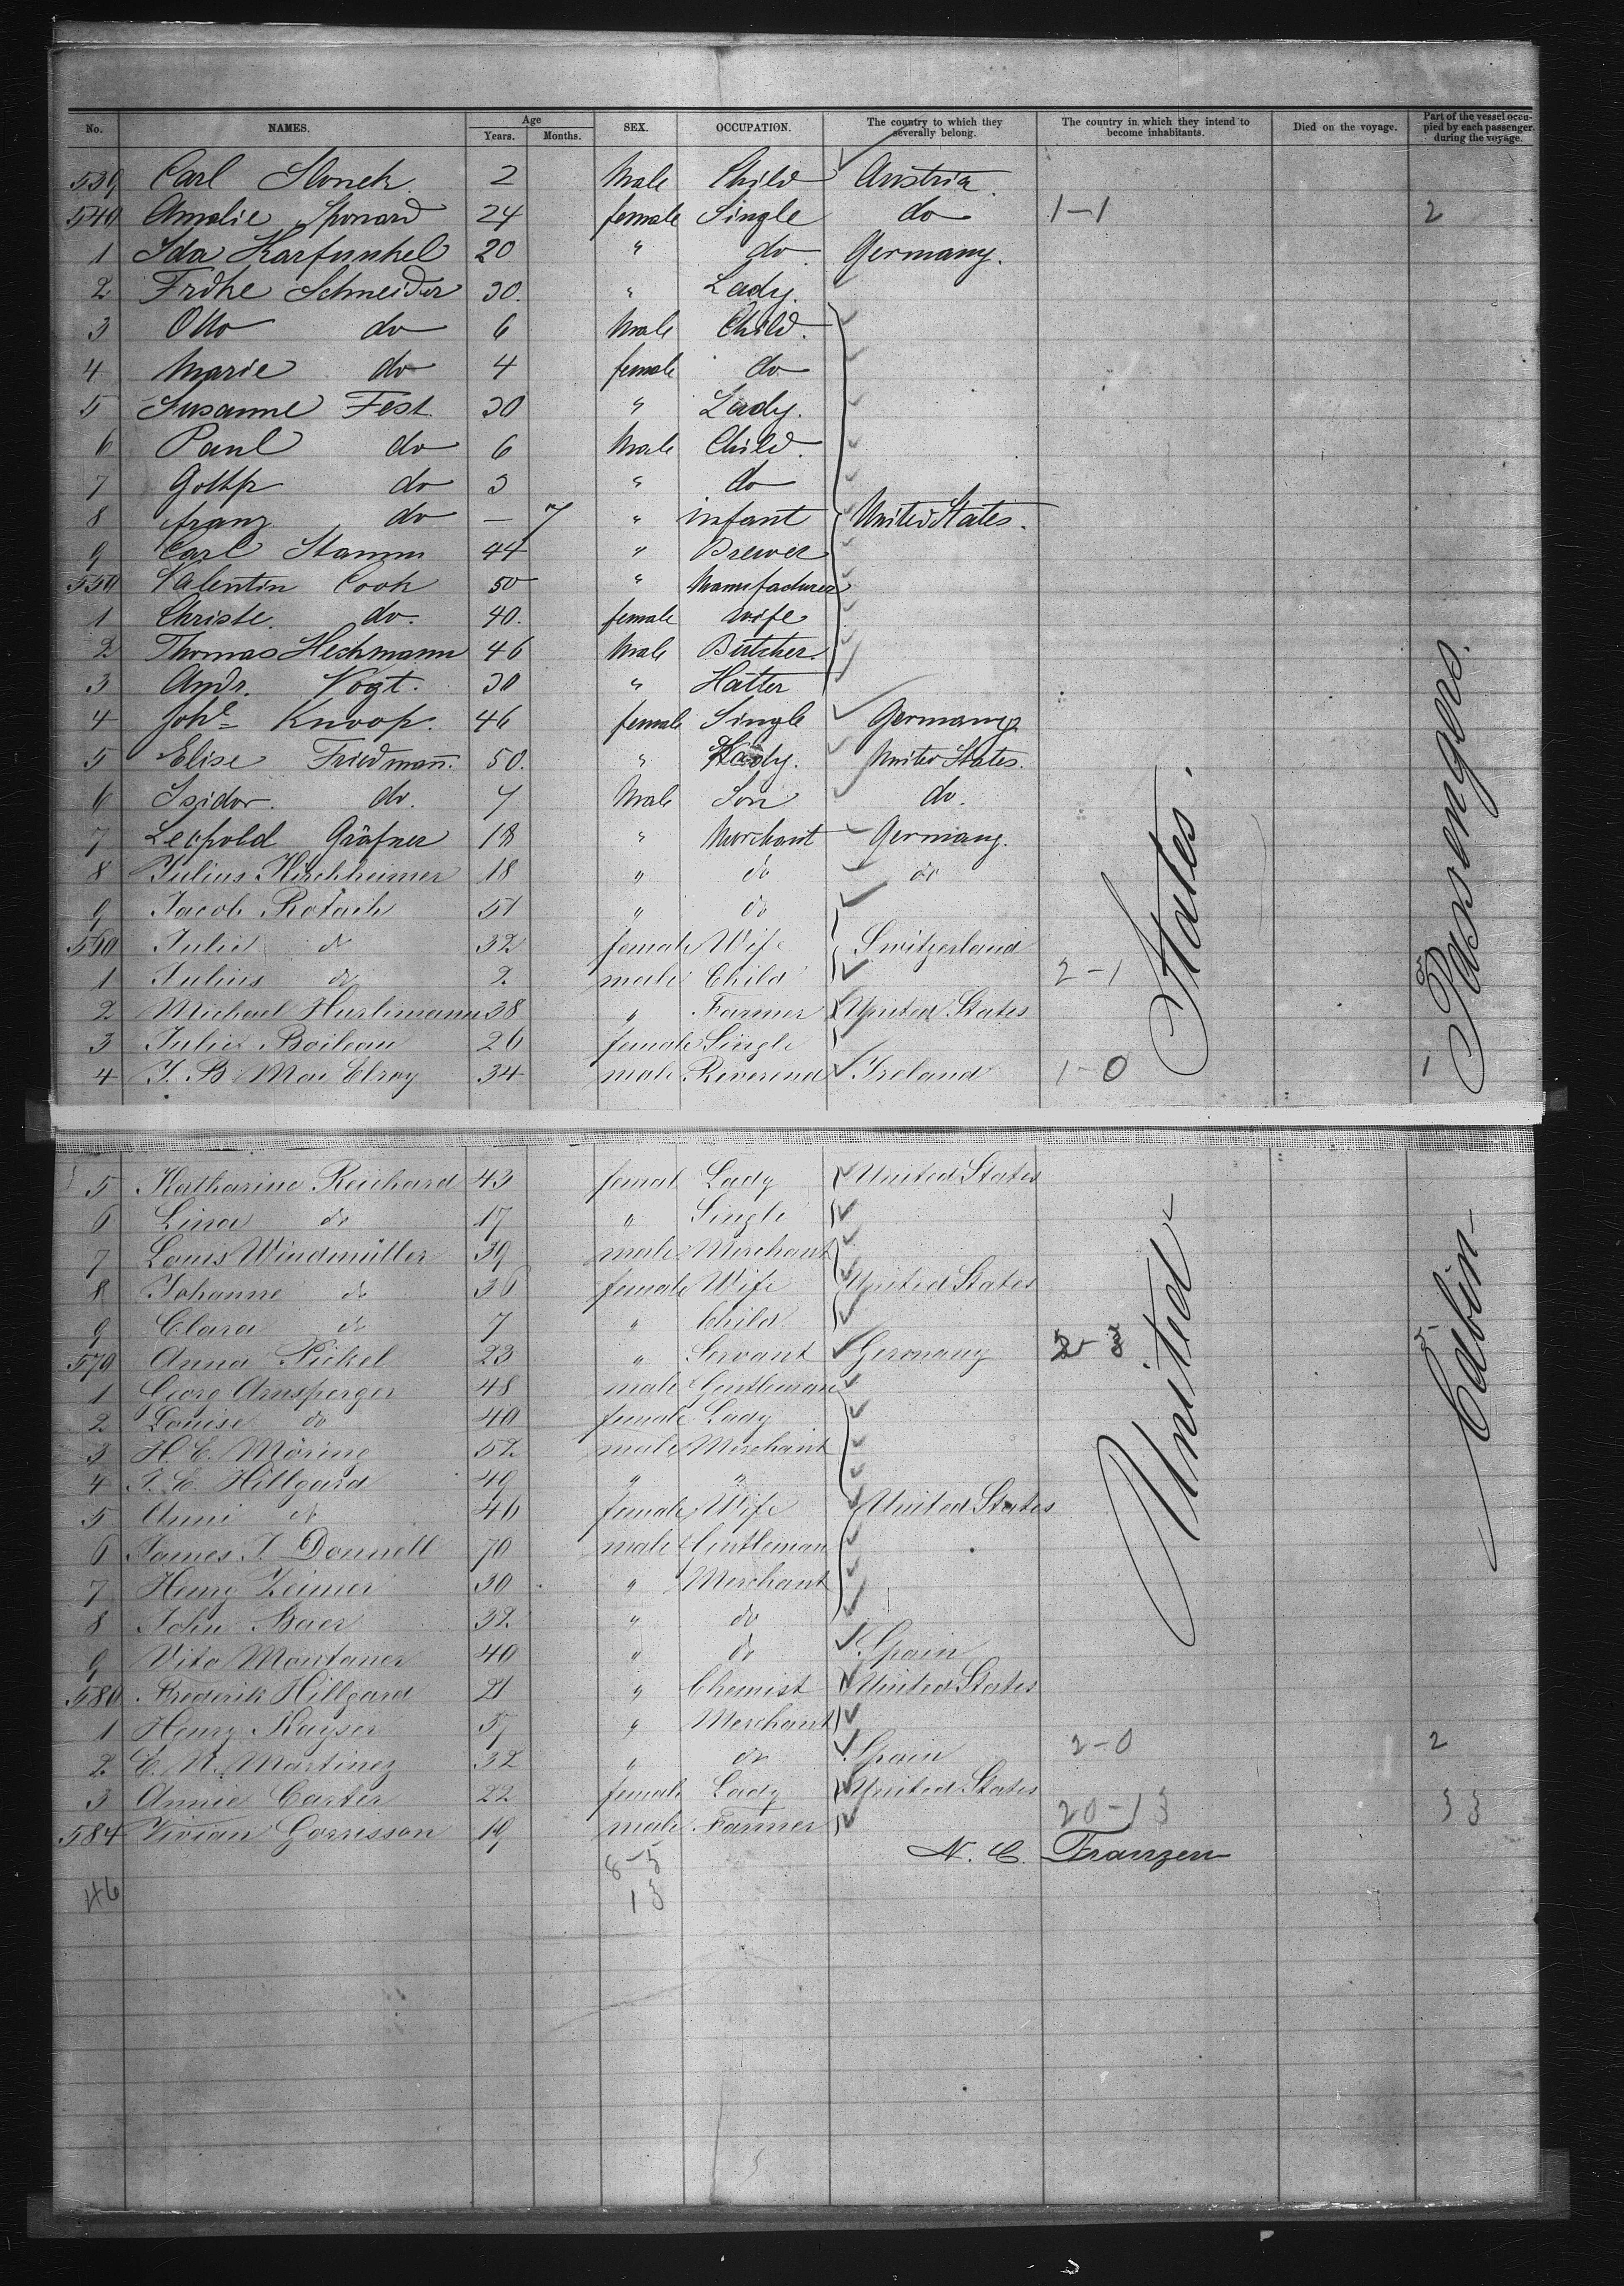 No. NAMES. Age Years. Months. SEX. OCCUPATION. The country to which they severally belong. The country in which they intend to become inhabitants. Died on the voyage. Part of the vessel occupied by each passenger during the voyage.
539 Carl 2 Male Child Austria.
540 Amalie 24 female Single do 1-1 2
1 Ida Karfunkel 20 " do Germany.
2 Frdke Schneider 30. " Lady.
3 Otto do 6 Male Child.
4 Marie do 4 female do
5 Susanne Fest. 30 " Lady.
6 Paul do 6 Male Child.
7 do 3 " do
8 franz do — 7 " infant United States.
9 Carl Stamm 44 " Brewer
550 Valentin Cook 50 " Manufacturer
1 Christe. do. 40. female wife
2 Thomas Heckmann 46 Male Butcher.
3 Andr. Vogt. 30 " Hatter
4 Knoop. 46 female Single Germany
5 Elise Friedmañ. 50. " Lady. United States.
6 Isidor. do. 7 Male Son do.
7 Leopold Gräfner 18 " Merchant Germany.
8 Julius Hirchheimer 18 " do do
9 Jacob Rotach 51 " do
560 Julie do 32 female Wife Switzerland
1 Julius do 2 male Child 2-1 2
2 Michael Hurlimann 38 " Farmer United States
3 Julie Boileau 26 female Single
4 J. B. Mac Elroy 34 male Reverend Ireland 1-0 1
5 Katharine Reichard 43 femal Lady United States
6 Lina do 17 " Single
7 Louis Windmüller 39 male Merchant
8 Johanne do 36 female Wife United States
9 Clara do 7 " Child
570 Anna Pickel 23 " Servant Germany
1 Georg Arnsperger 48 male Gentleman
2 Louise do 40 female Lady
3 H. C. Möring 52 male Merchant
4 Hillgard 49 " "
5 Anni do 46 female Wife United States
6 James J. Donnell 70 male Gentleman
7 Henry Zeimer 30 " Merchant
8 John Baer 32 " do
9 Vito Montaner 40 " do Spain
580 Frederik Hillgard 21 " Chemist United States
1 Henry Kayser 37 " Merchant
2 Martinez 32 " do Spain 2-0 2
3 Annie Carter 22 female Lady United States
584 Vivian Garrisson 19 male Farmer 20-13 33
N. C. Franzen
8-5
46 13
United States.
Cabin-Passengers.